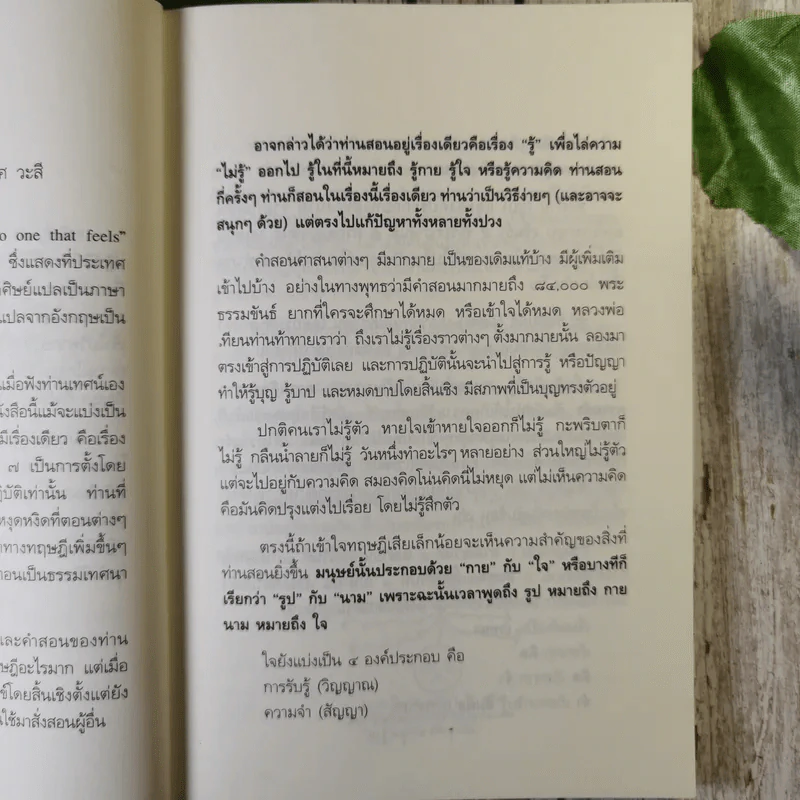 ศ วะสี
o one that feels”
ซึ่งแสดงที่ประเทศ
ศิษย์แปลเป็นภาษา
แปลจากอังกฤษเป็น
เมื่อฟังท่านเทศน์เอง
ังสือนี้แม้จะแบ่งเป็น
มีเรื่องเดียว คือเรื่อง
๗ เป็นการตั้งโดย
ฏิบัติเท่านั้น ท่านที่
หงุดหงิดที่ตอนต่างๆ
าทางทฤษฎีเพิ่มขึ้นๆ
อนเป็นธรรมเทศนา
และคำสอนของท่าน
ษฎีอะไรมาก แต่เมื่อ
ข์โดยสิ้นเชิงตั้งแต่ยัง
นใช้มาสั่งสอนผู้อื่น
อาจกล่าวได้ว่าท่านสอนอยู่เรื่องเดียวคือเรื่อง “รู้” เพื่อไล่ความ
“ไม่รู้” ออกไป รู้ในที่นี้หมายถึง รู้กาย รู้ใจ หรือรู้ความคิด ท่านสอน
กี่ครั้งๆ ท่านก็สอนในเรื่องนี้เรื่องเดียว ท่านว่าเป็นวิธีง่ายๆ (และอาจจะ
สนุกๆ ด้วย) แต่ตรงไปแก้ปัญหาทั้งหลายทั้งปวง
คำสอนศาสนาต่างๆ มีมากมาย เป็นของเดิมแท้บ้าง มีผู้เพิ่มเติม
เข้าไปบ้าง อย่างในทางพุทธว่ามีคำสอนมากมายถึง ๘๔,๐๐๐ พระ
ธรรมขันธ์ ยากที่ใครจะศึกษาได้หมด หรือเข้าใจได้หมด หลวงพ่อ
เทียนท่านท้าทายเราว่า ถึงเราไม่รู้เรื่องราวต่างๆ ตั้งมากมายนั้น ลองมา
ตรงเข้าสู่การปฏิบัติเลย และการปฏิบัตินั้นจะนำไปสู่การรู้ หรือปัญญา
ทำให้รู้บุญ รู้บาป และหมดบาปโดยสิ้นเชิง มีสภาพที่เป็นบุญทรงตัวอยู่
ปกติคนเราไม่รู้ตัว หายใจเข้าหายใจออกก็ไม่รู้ กะพริบตาก็
ไม่รู้ กลืนน้ำลายก็ไม่รู้ วันหนึ่งทำอะไรๆ หลายอย่าง ส่วนใหญ่ไม่รู้ตัว
แต่จะไปอยู่กับความคิด สมองคิดโน่นคิดนี่ไม่หยุด แต่ไม่เห็นความคิด
คือมันคิดปรุงแต่งไปเรื่อย โดยไม่รู้สึกตัว
ตรงนี้ถ้าเข้าใจทฤษฎีเสียเล็กน้อยจะเห็นความสำคัญของสิ่งที่
ท่านสอนยิ่งขึ้น มนุษย์นั้นประกอบด้วย “กาย” กับ “ใจ” หรือบางทีก็
เรียกว่า “รูป” กับ “นาม” เพราะฉะนั้นเวลาพูดถึง รูป หมายถึง กาย
นาม หมายถึง ใจ
ใจยังแบ่งเป็น ๔ องค์ประกอบ คือ
การรับรู้ (วิญญาณ)
ความจำ (สัญญา)